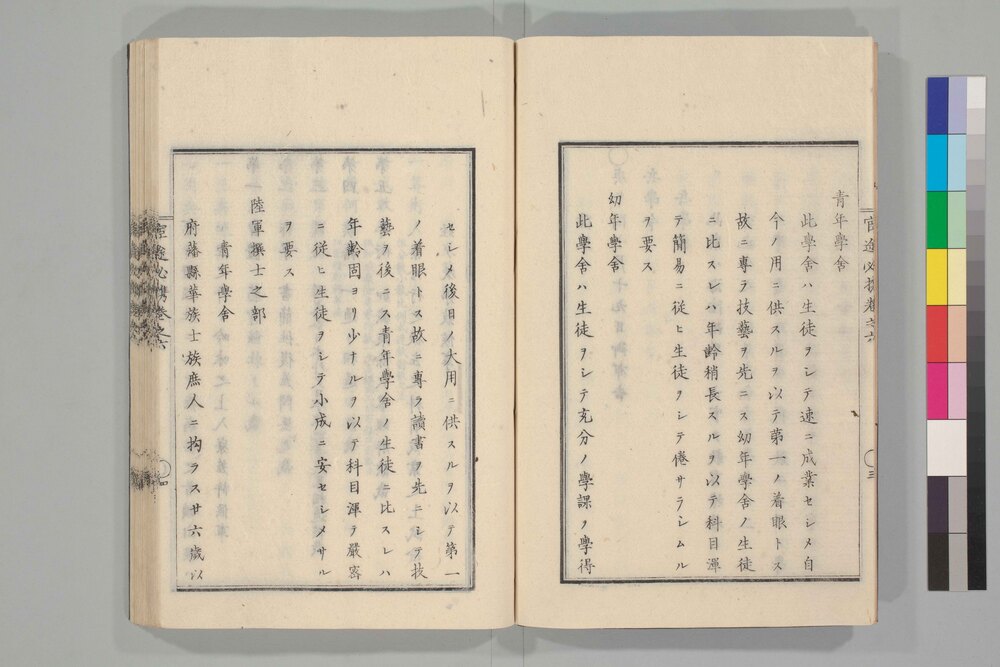 青年學舍
此學舍ハ生徒ヲシテ速ニ成業セシメ自
今ノ用ニ供スルヲ以テ第一ノ着眼トス
故ニ專ラ技藝ヲ先ニス幼年學舍ノ生徒
ニ比スレハ年齡稍長スルヲ以テ科目渾
テ簡易ニ從ヒ生徒ヲシテ倦サラシムル
ヲ要ス
幼年學舍
此學舍ハ生徒ヲシテ充分ノ學課ヲ學得
セシメ後日ノ大用ニ供スルヲ以テ第一
ノ着眼トス故ニ專ラ讀書ヲ先ニシテ技
藝ヲ後ニス青年學舍ノ生徒ニ比スレハ
年齡固ヨリ少ナルヲ以テ科目渾テ嚴密
ニ從ヒ生徒ヲシテ小成ニ安セシメサル
ヲ要ス
陸軍撰士之部
青年學舍
府藩縣華族士族庶人ニ拘ラス廿六歲以
官途必携卷之六
三
官途必携卷之六